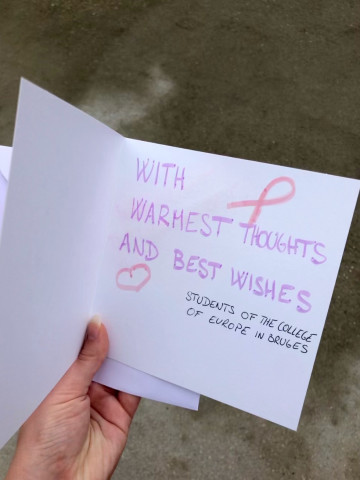 WITH
WARMEST THOUGHTS
AND BEST WISHES
STUDENTS OF THE COLLEGE
OF EUROPE IN BRUGES